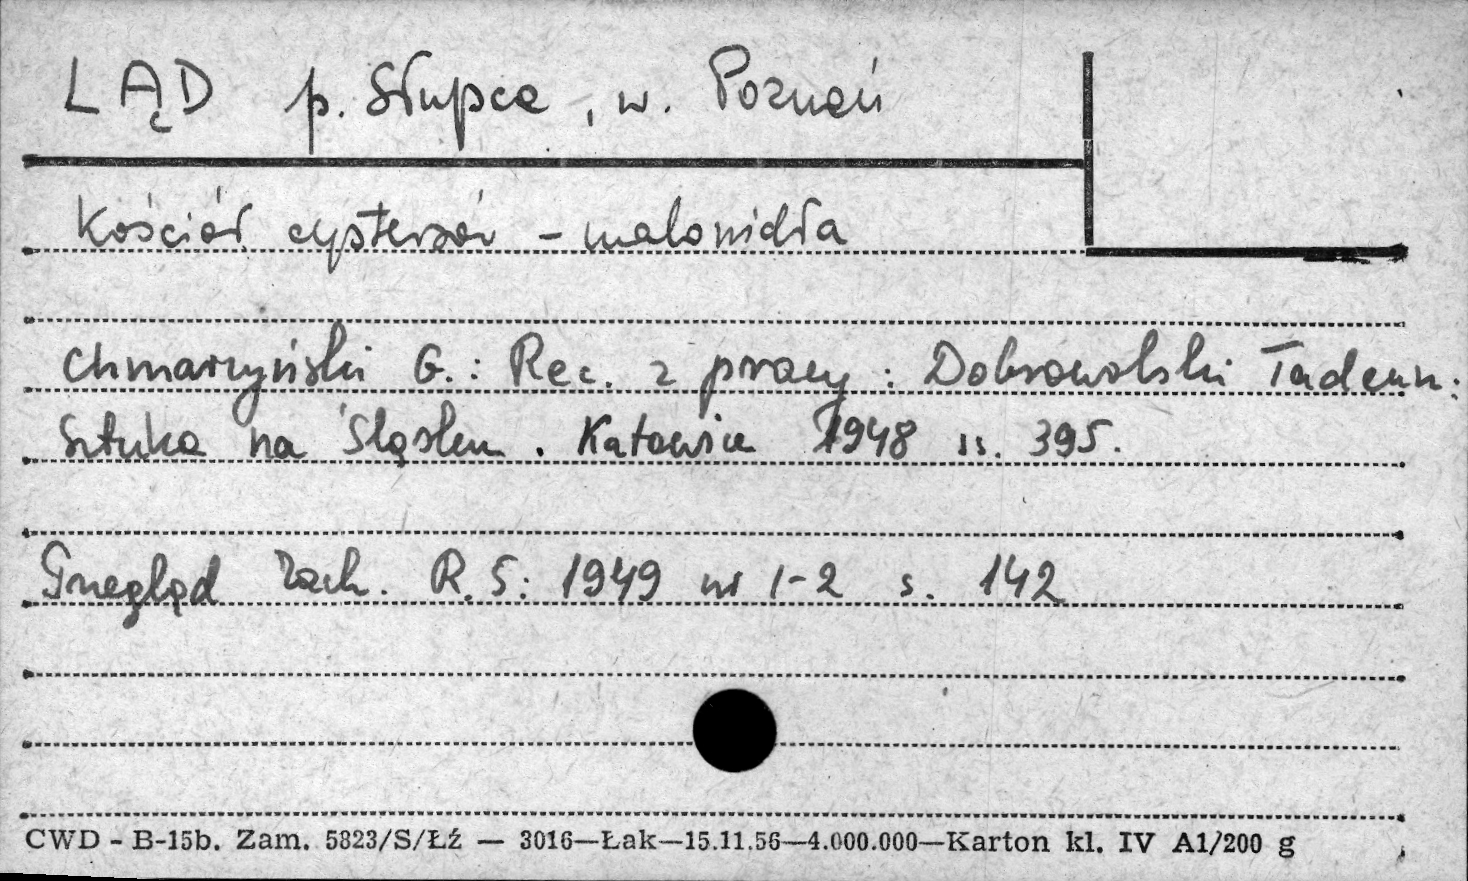 LĄD p. Słupca, w. Poznań
Kościół cystersów - malowidła
Chmarzyński G.: Rec. z pracy: Dobrowolski Tadeusz:
Sztuka na Śląsku. Katowice 1948 ss. 395.
Przegląd Zach. R. 5: 1949 nr 1-2 s. 142
CWD - B-15b. Zam. 5823/S/Łź — 3016—Łak—15.11.56—4.000.000—Karton kl. IV A1/200 g